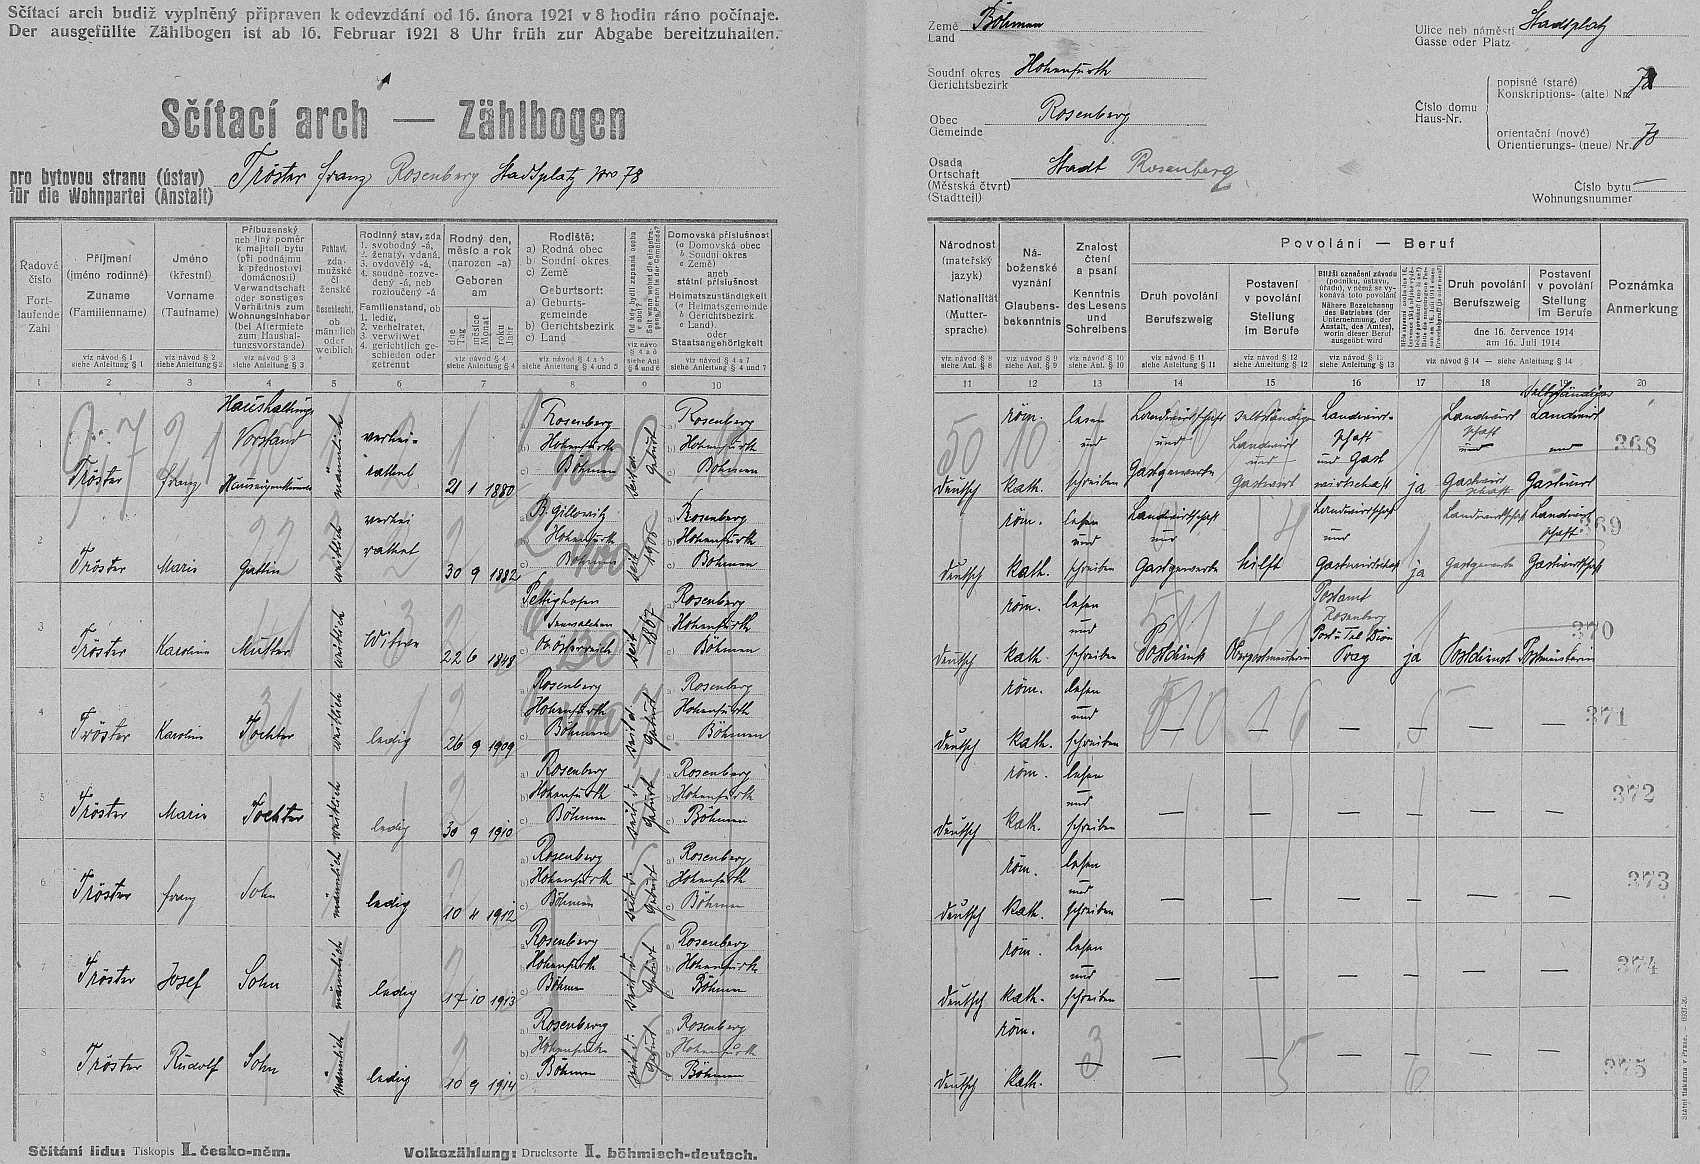 Sčítací arch budiž vyplněný připraven k odevzdání od 16. února 1921 v 8 hodin ráno počínaje.
Der ausgefüllte Zählbogen ist ab 16. Februar 1921 8 Uhr früh zur Abgabe bereitzuhalten.
Sčítací arch — Zählbogen
pro bytovou stranu (ústav)
für die Wohnpartei (Anstalt)
Tröster Franz Rosenberg Stadtplatz Nro 78
Země
Land
Böhmen
Soudní okres
Gerichtsbezirk
Hohenfurth
Obec
Gemeinde
Rosenberg
Osada
Ortschaft
(Městská čtvrť)
(Stadtteil)
Stadt Rosenberg
Ulice neb náměstí
Gasse oder Platz
Stadtplatz
Číslo domu
Haus-Nr.
popisné (staré)
Konskriptions- (alte) Nr.
78
orientační (nové)
Orientierungs- (neue) Nr.
78
Číslo bytu
Wohnungsnummer
Řadové číslo
Fortlaufende Zahl
Příjmení
(jméno rodinné)
Zuname
(Familienname)
viz návod § 1
siehe Anleitung § 1
Jméno
(křestní)
Vorname
(Taufname)
viz návod § 2
siehe Anleitung § 2
Příbuzenský
neb jiný poměr
k majiteli bytu
(při podnájmu
k přednostovi
domácnosti)
Verwandtschaft
oder sonstiges
Verhältnis zum
Wohnungsinhaber
(bei Aftermiete
zum Haushal-
tungsvorstande)
viz návod § 3
siehe Anleitung § 3
Pohlaví,
zda
mužské
či
ženské
Geschlecht,
ob
männlich
oder
weiblich
Rodinný stav, zda
1. svobodný -á,
2. ženatý, vdaná,
3. ovdovělý -á,
4. soudně rozve-
dený -á, neb
rozloučený -á
Familienstand, ob
1. ledig,
2. verheiratet,
3. verwitwet
4. gerichtlich ge-
schieden oder
getrennt
Rodný den,
měsíc a rok
(narozen -a)
Geboren
am
dne Tag
měsíce Monat
roku Jahr
viz návod § 4
siehe Anleitung § 4
Rodiště:
a) Rodná obec
b) Soudní okres
c) Země
Geburtsort:
a) Geburts-
gemeinde
b) Gerichtsbezirk
c) Land
viz návod § 4 a 5
siehe Anleitung § 4 und 5
Domovská příslušnost
(a Domovská obec
(b Soudní okres
(c Země)
aneb
státní příslušnost
Heimatszuständigkeit
(a Heimatsgemeinde
(b Gerichtsbezirk
(c Land)
oder
Staatsangehörigkeit
viz návod § 4 a 7
siehe Anleitung § 4 und 7
Národnost
(mateřský
jazyk)
Nationalität
(Mutter-
sprache)
viz návod § 8
siehe Anl. § 8
Ná-
boženské
vyznání
Glaubens-
bekenntnis
viz návod § 9
siehe Anl. § 9
Znalost
čtení
a psaní
Kenntnis
des Lesens
und
Schreibens
viz návod § 10
siehe Anl. § 10
Povolání — Beruf
Druh povolání
Berufszweig
viz návod § 11
siehe Anleitung § 11
Postavení
v povolání
Stellung
im Berufe
viz návod § 12
siehe Anleitung § 12
Bližší označení závodu
(podniku, ústavu,
úřadu), v němž se vy-
konává toto povolání
Nähere Bezeichnung
des Betriebes (der
Unternehmung, der
Anstalt, des Amtes),
worin dieser Beruf
ausgeübt wird
viz návod § 13
siehe Anleitung § 13
Druh povolání
Berufszweig
Postavení
v povolání
Stellung
im Berufe
dne 16. července 1914
am 16. Juli 1914
viz návod § 14 — siehe Anleitung § 14
Poznámka
Anmerkung
1 2 3 4 5 6 7 8 9 10 11 12 13 14 15 16 17 18 19 20
1 Tröster Franz Haushaltungs Vorstand männlich verhei-ratet 21 1 1880
a) Rosenberg b) Hohenfurth c) Böhmen seit d. Geburt a) Rosenberg b) Hohenfurth c) Böhmen
deutsch röm. kath. lesen und schreiben Landwirtschaft und Gastgewerbe selbständiger Landwirt und Gastwirt Landwirt-schaft und Gast wirtschaft ja Landwirt schaft und Gastwirt schaft Selbständiger Landwirt und Gastwirt 368
2 Tröster Marie Gattin weiblich verhei ratet 30 9 1882
a) B. Gillowitz b) Hohenfurth c) Böhmen seit 1906 a) Rosenberg b) Hohenfurth c) Böhmen
deutsch röm. kath. lesen und schreiben Landwirtschaft und Gastgewerbe hilft Landwirtschaft und Gastwirtschaft ja Landwirtschaft Gastgewerbe Landwirt schaft Gastwirtschaft 369
3 Tröster Karoline Mutter weiblich Witwe 22 6 1848
a) Pettighofen c) Ob. Österreich seit 1867 a) Rosenberg b) Hohenfurth c) Böhmen
deutsch röm. kath. lesen und schreiben Postdienst Oberpostmeisterin Postamt Rosenberg Post u. Tel. Dion Prag ja Postdienst Postmeisterin 370
4 Tröster Karoline Tochter weiblich ledig 26 9 1909
a) Rosenberg b) Hohenfurth c) Böhmen seit d. Geburt a) Rosenberg b) Hohenfurth c) Böhmen
deutsch röm. kath. lesen und schreiben — — — — — 371
5 Tröster Marie Tochter weiblich ledig 30 9 1910
a) Rosenberg b) Hohenfurth c) Böhmen seit d. Geburt a) Rosenberg b) Hohenfurth c) Böhmen
deutsch röm. kath. lesen und schreiben — — — — — 372
6 Tröster Franz Sohn männlich ledig 10 4 1912
a) Rosenberg b) Hohenfurth c) Böhmen seit d. Geburt a) Rosenberg b) Hohenfurth c) Böhmen
deutsch röm. kath. lesen und schreiben — — — — — 373
7 Tröster Josef Sohn männlich ledig 17 10 1913
a) Rosenberg b) Hohenfurth c) Böhmen seit d. Geburt a) Rosenberg b) Hohenfurth c) Böhmen
deutsch röm. kath. lesen und schreiben — — — — — 374
8 Tröster Rudolf Sohn männlich ledig 10 9 1914
a) Rosenberg b) Hohenfurth c) Böhmen seit d. Geburt a) Rosenberg b) Hohenfurth c) Böhmen
deutsch röm. kath. — — — — — — 375
Sčítání lidu: Tiskopis I. česko-něm.
Volkszählung: Drucksorte I. böhmisch-deutsch.
Státní tiskárna v Praze.